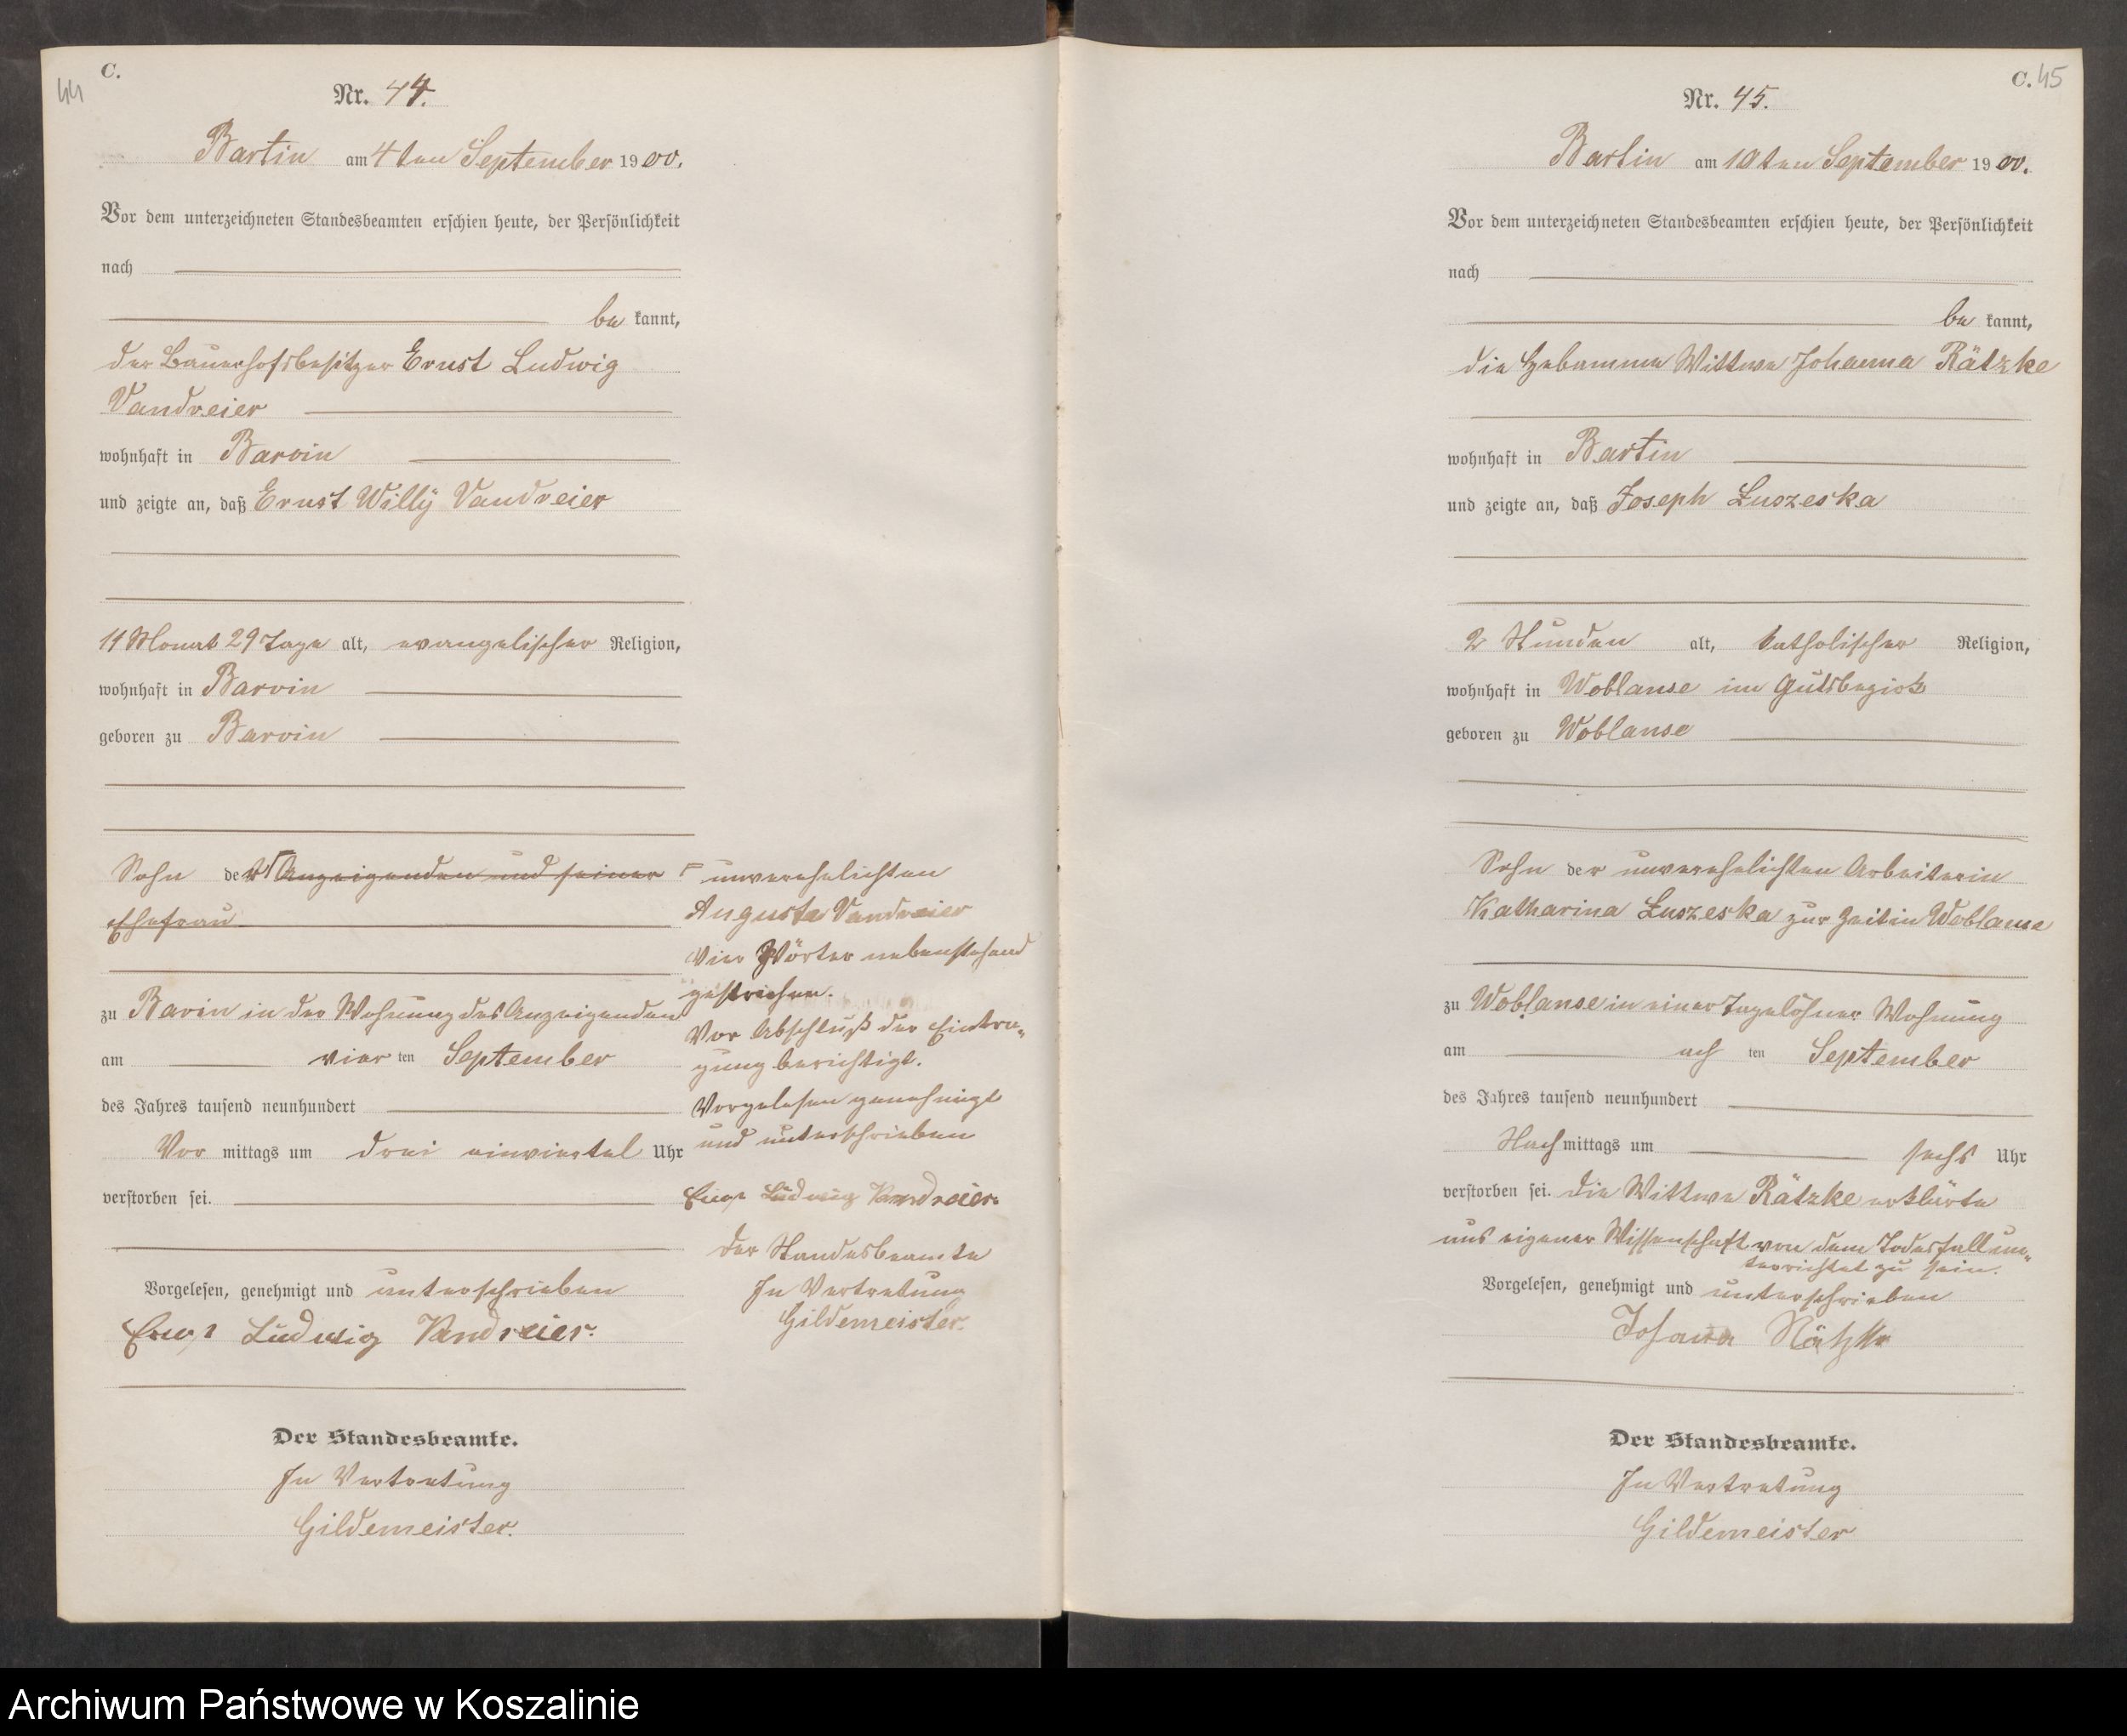 C.
44
Nr. 44.
Bartin am 4ten September 1900.
Vor dem unterzeichneten Standesbeamten erschien heute, der Persönlichkeit
nach
bekannt,
der Bauerhofsbesitzer Ernst Ludwig
Vandreier
wohnhaft in Barvin
und zeigte an, daß Ernst Willÿ Vandreier
11 Monat 29 Tage alt, evangelischer Religion,
wohnhaft in Barvin
geboren zu Barvin
Sohn der Anzeigenden und seiner
Ehefrau
zu Barvin in der Wohnung des Anzeigenden
am vierten September
des Jahres tausend neunhundert
Vormittags um drei einviertel Uhr
verstorben sei.
Vorgelesen, genehmigt und unterschrieben
Ernst Ludwig Vandreier.
Der Standesbeamte.
In Vertretung
Gildemeister.
unverehelichten
Auguste Vandreier
Vier Wörter nebenstehend
gestrichen.
Vor Abschluß der Eintra-
gung berichtigt.
Vorgelesen genehmigt
und unterschrieben
Ernst Ludwig Vandreier.
Der Standesbeamte
In Vertretung
Gildemeister.
C. 45
Nr. 45.
Bartin am 10ten September 1900.
Vor dem unterzeichneten Standesbeamten erschien heute, der Persönlichkeit
nach
bekannt,
die Hebamme Wittwe Johanna Rätzke
wohnhaft in Bartin
und zeigte an, daß Joseph Łuszeska
2 Stunden alt, katholischer Religion,
wohnhaft in Woblanse im Gutsbezirk
geboren zu Woblanse
Sohn der unverehelichten Arbeiterin
Katharina Łuszeska zur Zeit in Woblanse
zu Woblanse in einer Tagelöhner Wohnung
am achten September
des Jahres tausend neunhundert
Nachmittags um sechs Uhr
verstorben sei. Die Wittwe Rätzke erklärte
aus eigener Wissenschaft von dem Todesfall un-
terrichtet zu sein.
Vorgelesen, genehmigt und unterschrieben
Johana Rätzke
Der Standesbeamte.
In Vertretung
Gildemeister
Archiwum Państwowe w Koszalinie